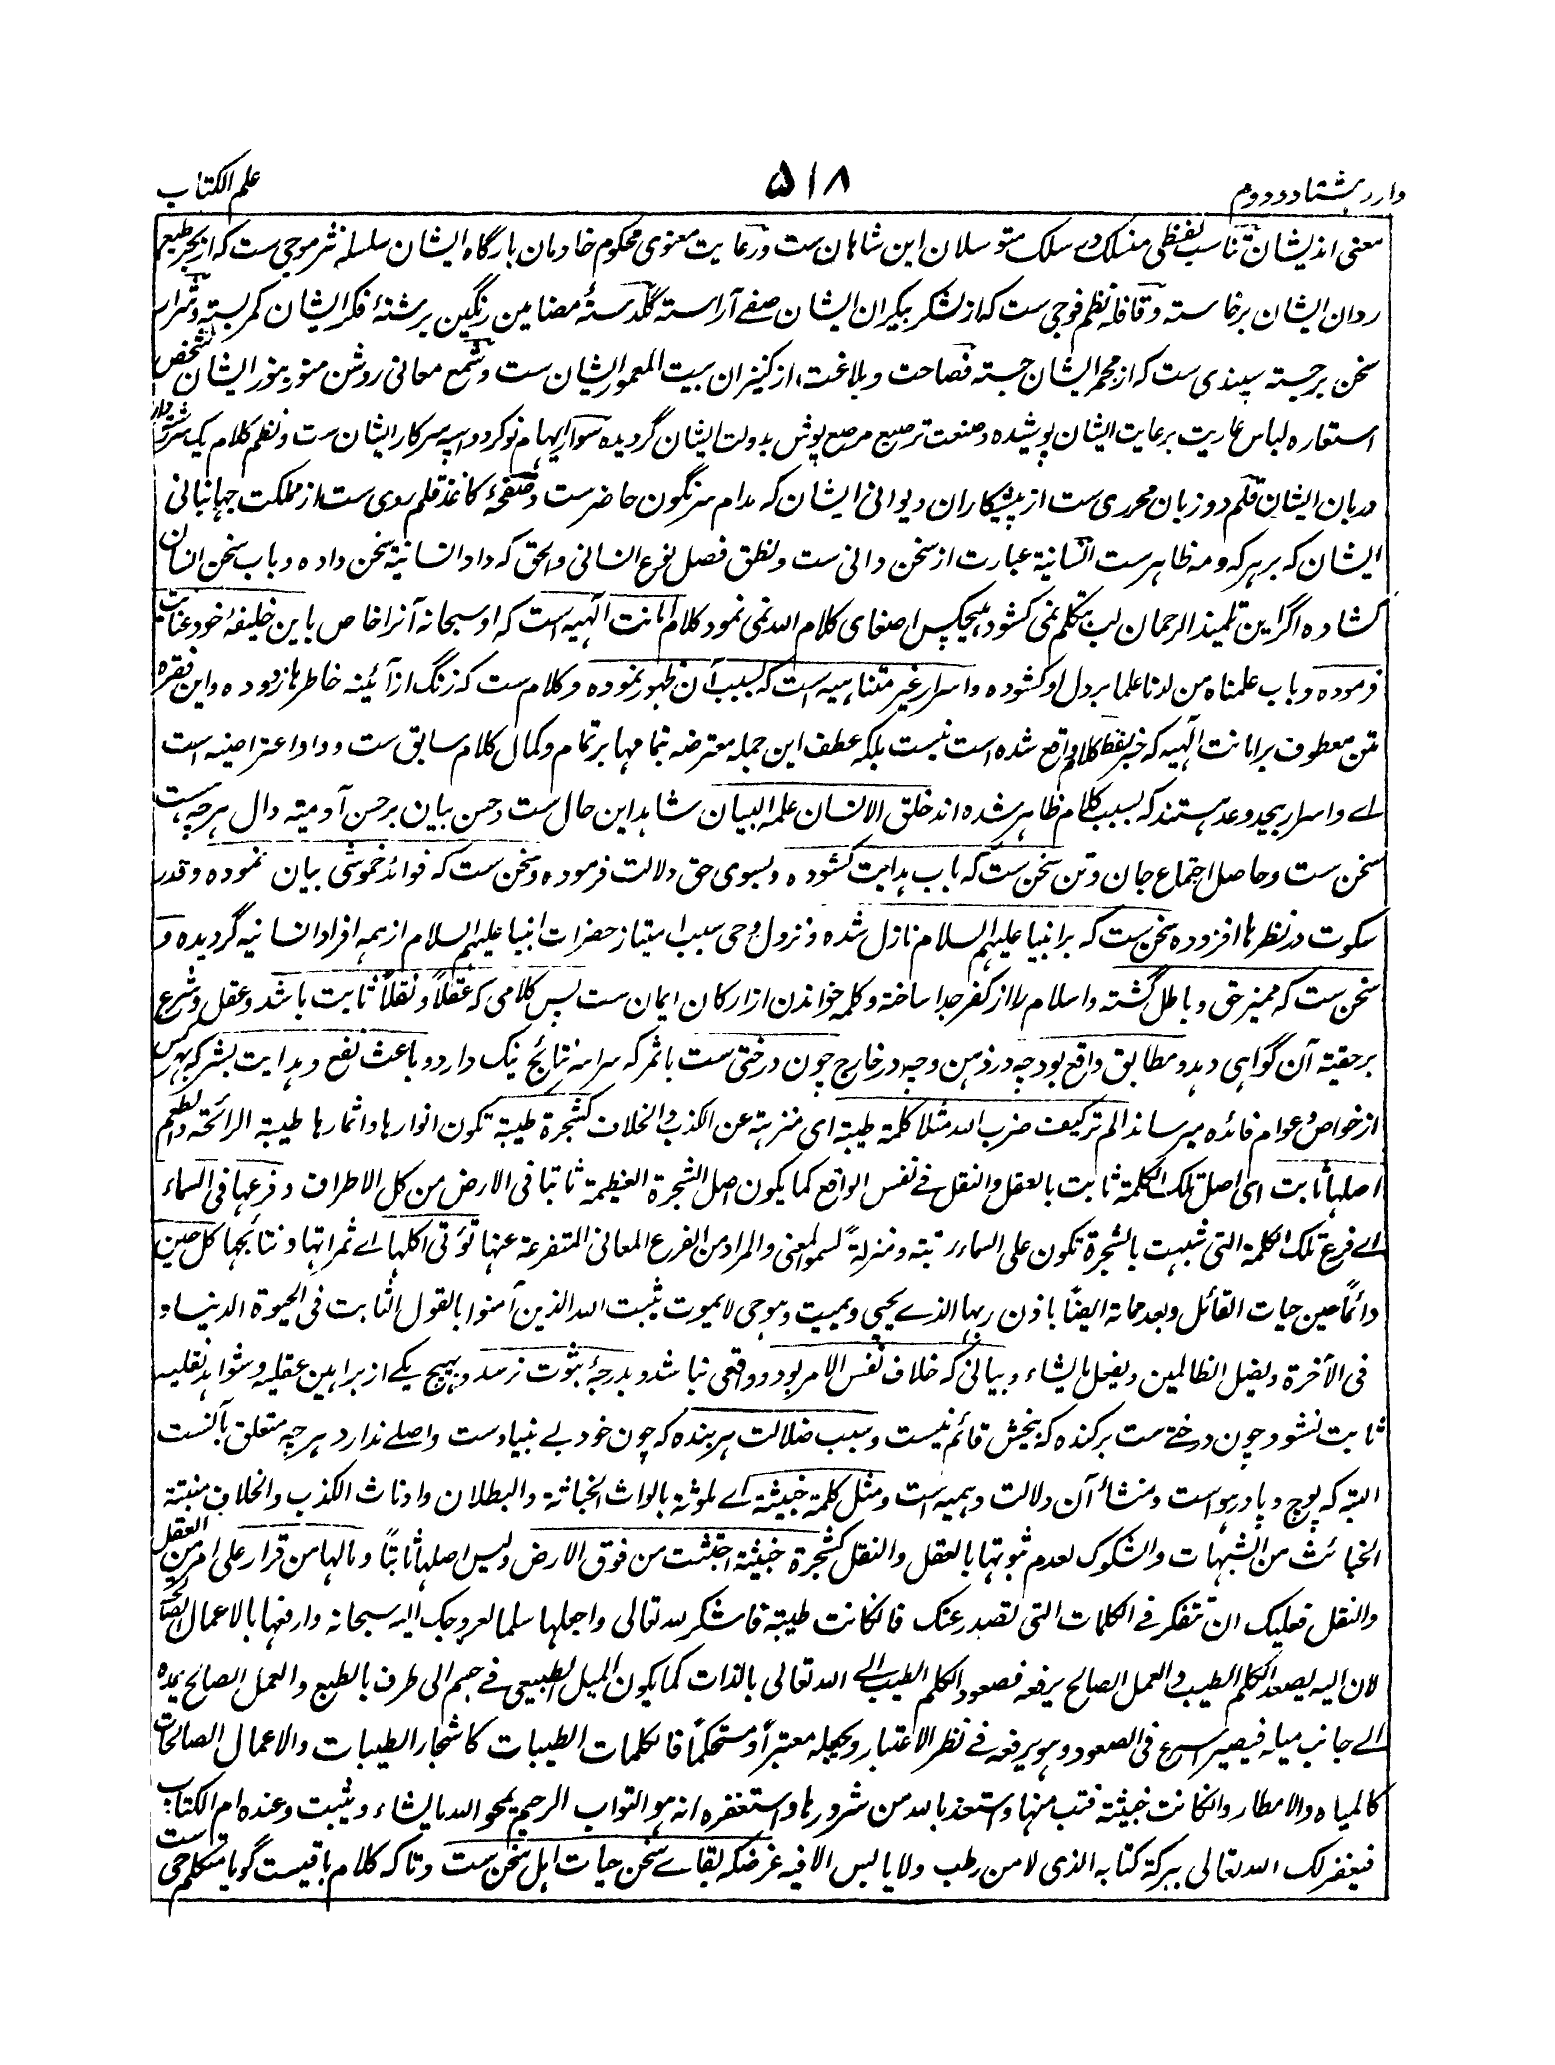 وارد هشتاد و دوم
۵۱۸
علم الکتاب
معنی اند ایشان تناسب لفظی منسلک در سلک متوسلان این شاهان ست و رعایت معنوی محکوم خادمان بارگاه ایشان سلسلهٔ نثر موجی ست که از بحر طبع
روان ایشان برخاسته و قافلهٔ نظم فوجی ست که از لشکر بیکران ایشان صفے آراسته گلدستهٔ مضامین رنگین بر رشتهٔ فکر ایشان کمر بسته و شرار
سخن برجسته سپندی ست که از مجمر ایشان جسته فصاحت و بلاغت از کنیزان بیت المعمور ایشان ست و شمع معانی روشن منور بنور ایشان شخص
استعاره لباس عاریت برعایت ایشان پوشیده و صنعت ترصیع مرصع پوش بدولت ایشان گردیده سوار ایهام نوکر دو اسپه سرکار ایشان ست و نظم کلام یک سر رشته دار
دربان ایشان قلم دو زبان محرری ست از پیشکاران دیوانی ایشان که مدام سرنگون حاضرست و صفحهٔ کاغذ قلم روی ست از مملکت جهانبانی
ایشان که بر هر که و مه ظاهرست انسانیة عبارت از سخن دانی ست و نطق فصل نوع انسانی و الحق که داد انسانیة سخن داده و باب سخن انسان
کشاده اگر این تلمیذ الرحمان لب بتکلم نمی کشود هیچکس اصغای کلام الله نمی نمود کلام امانت الٓهیه است که او سبحانه آنرا خاص باین خلیفهٔ خود عنایت
فرموده و باب علمناه من لدنا علما بر دل او کشوده و اسرار غیر متناهیه است که بسبب آن ظهور نموده و کلام ست که زنگ از آئینه خاطرها زدوده و این فقره
متن معطوف بر امانت الٓهیه که خبر لفظ کلام واقع شده است نیست بلکه عطف این جمله معترضه بتمامها بر تمام و کمال کلام سابق ست و واو اعتراضیه است
اے و اسرار بیحد و عد هستند که بسبب کلام ظاهر شده اند خلق الانسان علمه البیان شاهد این حال ست و حسن بیان بر حسن آدمیته دال هرچه هست
سخن ست و حاصل اجتماع جان و تن سخن ست که باب هدایت کشوده و بسوی حق دلالت فرموده و سخن ست که فوائد خموشی بیان نموده و قدر
سکوت در نظرها افزوده سخن ست که بر انبیا علیهم السلام نازل شده و نزول وحی سبب امتیاز حضرات انبیا علیهم السلام از همه افراد انسانیه گردیده و
سخن ست که ممیز حق و باطل گشته و اسلام را از کفر جدا ساخته و کلمه خواندن از ارکان ایمان ست پس کلامی که عقلاً و نقلاً ثابت باشد و عقل و شرع
بر حقیقة آن گواهی دهد و مطابق واقع بود چه در ذهن و چه در خارج چون درختی ست با ثمر که سراسر نتائج نیک دارد و باعث نفع و هدایت بشر که بهر کس
از خواص و عوام فائده میرساند الم تر کیف ضرب الله مثلا کلمة طیبة ای منزهة عن الکذب و الخلاف کشجرة طیبة تکون انوارها و اثمارها طیبة الرائحة و الطعم
اصلها ثابت ای اصل تلک الکلمة ثابت بالعقل و النقل فے نفس الواقع کما یکون اصل الشجرة العظیمة ثابتا فی الارض من کل الاطراف و فرعها فی السماء
اے فرع تلک الکلمة التی شبهت بالشجرة تکون علی السماء رتبة و منزلةً لسمو المعنی و المراد من الفرع المعانی المتفرعة عنها تؤتی اکلها اے ثمراتها و نتائجها کل حین
دائماً حین حیات القائل و بعد مماته ایضًا باذن ربها الذے یحیی و یمیت و هو حی لا یموت یثبت الله الذین آمنوا بالقول الثابت فی الحیوة الدنیا و
فی الآخرة و یضل الظالمین و یفعل ما یشاء و بیانی که خلاف نفس الامر بود و واقعی نباشد و بدرجهٔ ثبوت نرسد و بهیچ یکے از براهین عقلیه و شواهد نقلیه
ثابت نشود چون درختے ست برکنده که بیخش قائم نیست و سبب ضلالت هر بنده که چون خود بے بنیادست و اصلے ندارد هرچه متعلق بآنست
البته که پوچ و پا در هواست و منشاء آن دلالت وهمیه است و مثل کلمة خبیثة اے ملوثة بالواث الخباثة و البطلان و ادناث الکذب و الخلاف منبتة
الخبائث من الشبهات و الشکوک لعدم ثبوتها بالعقل و النقل کشجرة خبیثة اجتثت من فوق الارض و لیس اصلها ثابتًا و مالها من قرار علی امر من العقل
و النقل فعلیک ان تتفکر فے الکلمات التی تصدر عنک فان کانت طیبة فاشکر لله تعالی و اجعلها سلما لعروجک الیه سبحانه و ارفعها بالاعمال الصالحة
لان الیه یصعد الکلم الطیب و العمل الصالح یرفعه فصعود الکلم الطیب الے الله تعالی بالذات کما یکون المیل الطبیعی فے جسم الی طرف بالطبع و العمل الصالح یمده
الے جانب میله فیصیر اسرع فی الصعود و هو یرفعه فے نظر الاعتبار و یجعله معتبراً و مستحکماً فالکلمات الطیبات کاشجار الطیبات و الاعمال الصالحات
کالمیاه و الامطار و ان کانت خبیثة فتب منها و استعذ بالله من شرورها و استغفره انه هو التواب الرحیم یمحو الله ما یشاء و یثبت و عنده ام الکتاب
فیغفر لک الله تعالی ببرکة کتابه الذی لا من رطب ولا یابس الا فیه غرضکه بقاے سخن حیات اهل سخن ست و تا که کلام باقیست گویا متکلم حی ست